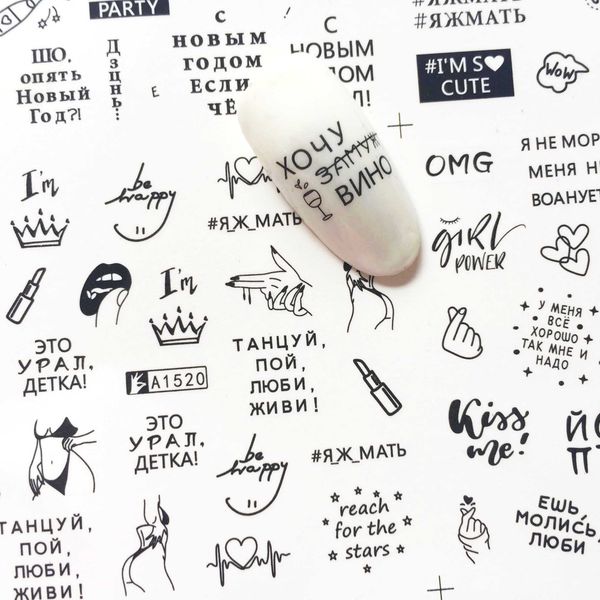 PARTY
#ЯЖМАТЬ
#ЯЖМАТЬ
ШО,
опять
Новый
Год?!
Дзцнь...
Е
С
новым
годом
Если
чё
С
НОВЫМ
#I'M S♥
CUTE
WOW
ХОЧУ
ЗАМУЖ
ВИНО
OMG
Я НЕ МОР
МЕНЯ Н
ВОАНУЕТ
I'm
be
happy
#Я_Ж_МАТЬ
GIRL
POWER
I'm
У МЕНЯ
ВСЁ
ХОРОШО
ТАК МНЕ И
НАДО
ЭТО
УРАЛ,
ДЕТКА!
A1520
ТАНЦУЙ,
ПОЙ,
ЛЮБИ,
ЖИВИ!
ЭТО
УРАЛ,
ДЕТКА!
be
happy
#Я_Ж_МАТЬ
Kiss
me!
reach
for the
stars
ЕШЬ,
МОЛИСЬ,
ЛЮБИ
ТАНЦУЙ,
ПОЙ,
ЛЮБИ,
ЖИВИ!